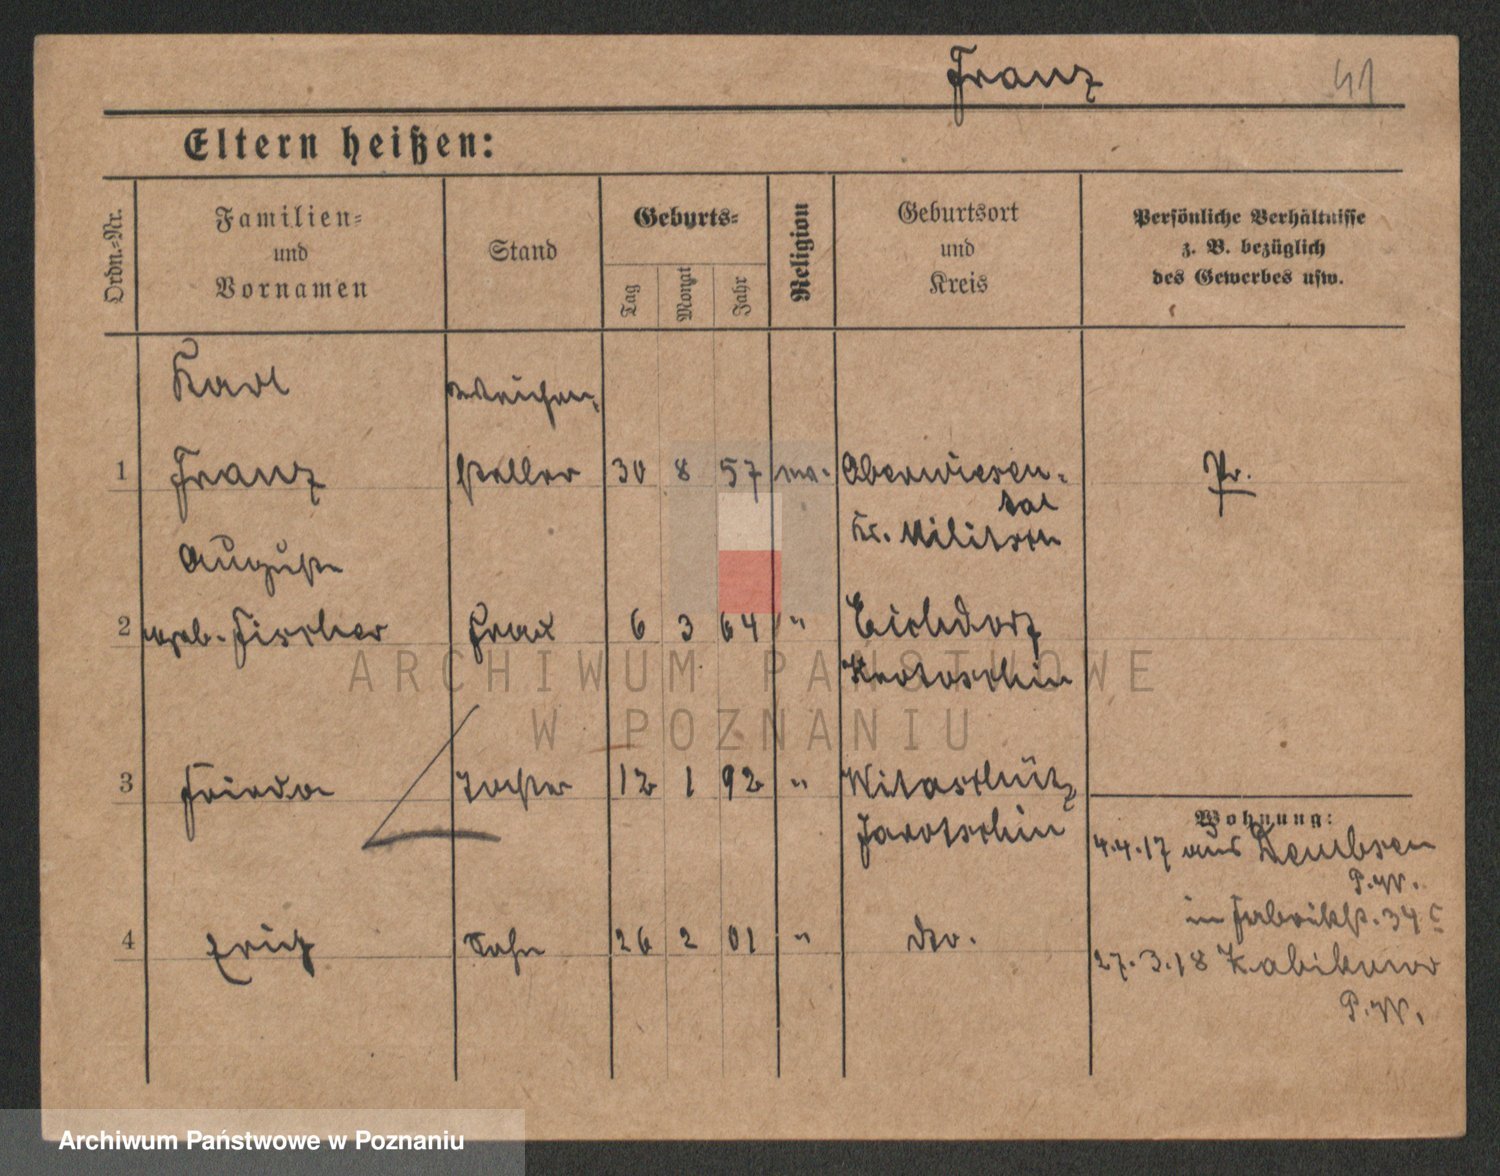 Franz 41
Eltern heißen:
Ordn.-Nr.
Familien-
und
Vornamen
Stand
Geburts-
Tag
Monat
Jahr
Religion
Geburtsort
und
Kreis
Persönliche Verhältnisse
z. B. bezüglich
des Gewerbes usw.
Karl Weichen-
1 Franz steller 30 8 57 Oberwiesen- Pr.
tal
Kr. Militsch
Auguste
2 geb. Fischer Frau 6 3 64 " Eichdorf
Krotoschin
3 Frieda Tochter 12 1 92 " Witaschütz
Jarotschin
Wohnung:
4.4.17 aus Dembsen
P.W.
in Fabrikst. 34
4 Erich Sohn 26 2 01 " do.
27.3.18 Zabikowo
P.W.
ARCHIWUM PAŃSTWOWE
W POZNANIU
Archiwum Państwowe w Poznaniu